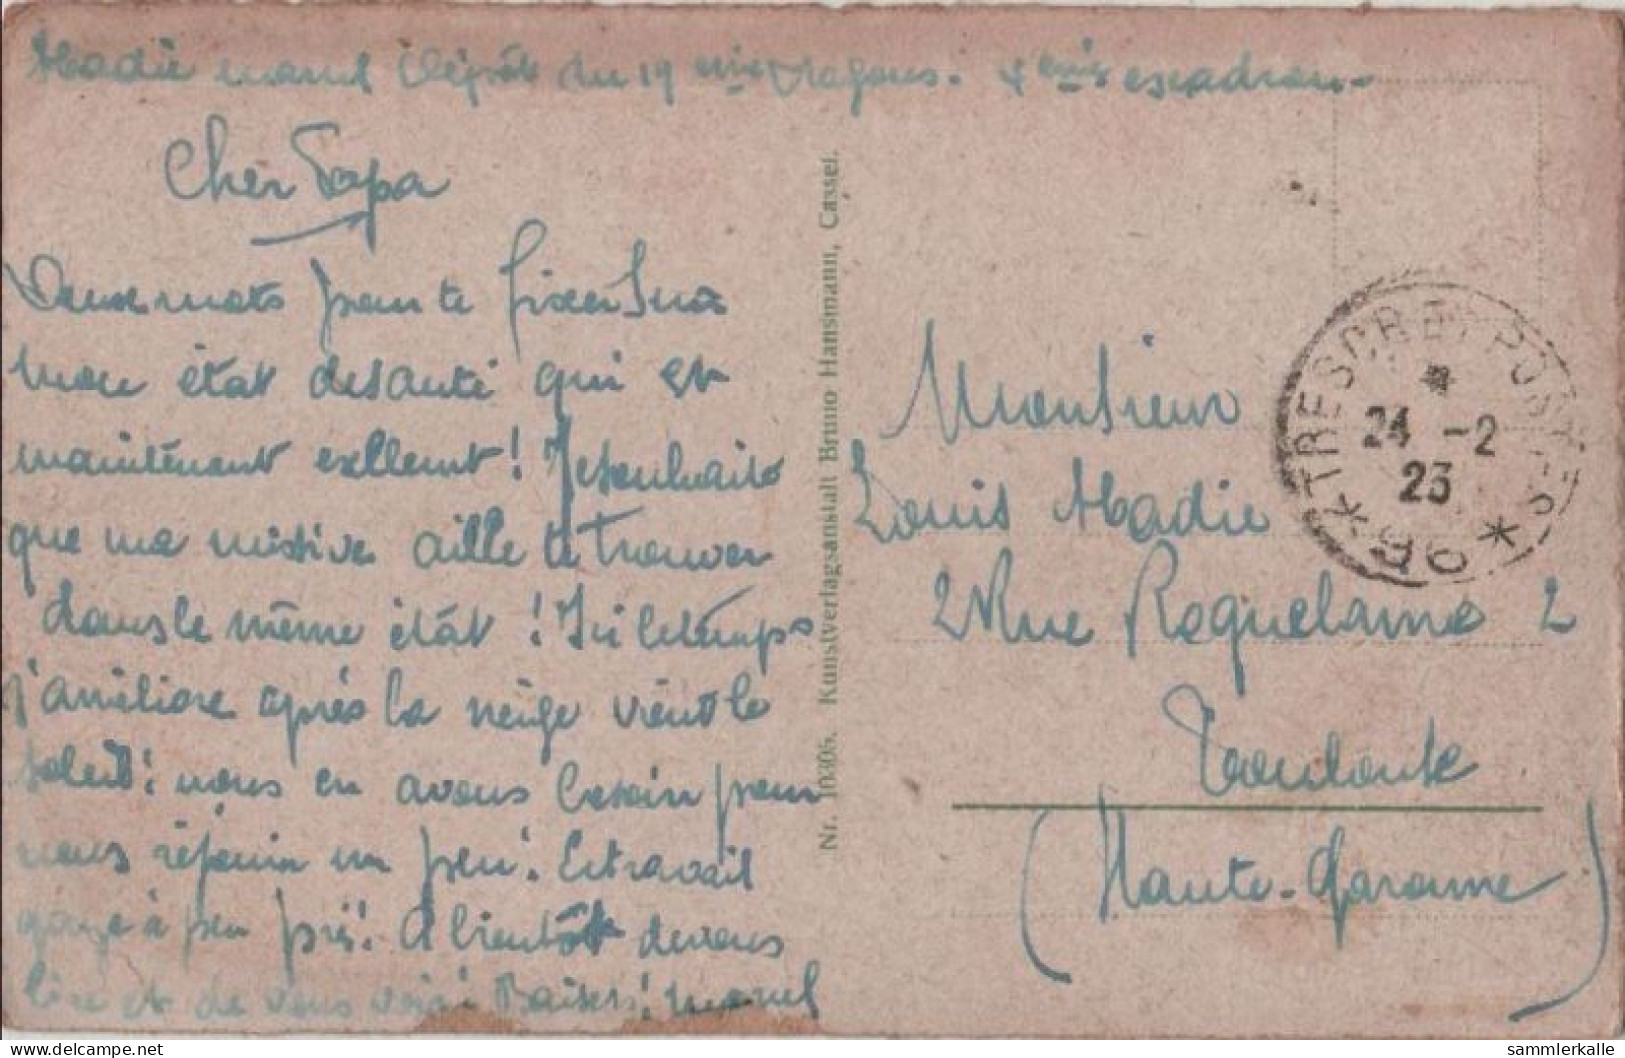 Abadie marcel Dépôt du 19 eme Dragons. 4 eme escadron.
Cher Papa
Deux mots pour te fixer sur
mon état de santé qui est
maintenant exellent! Je souhaite
que ma missive aille te trouver
dans le même état! Ici le temps
s'améliore après la neige vient le
soleil! nous en avons besoin pour
nous réjouir un peu! Le travail
gaze à peu prés! A bientôt de vous
lire et de vous voir! Baisers! marcel
Nr. 10305. Kunstverlagsanstalt Bruno Hansmann, Cassel.
TRESOR ET POSTES
* 96 *
24 -2
23
Monsieur
Louis Abadie
2 Rue Roquelaine 2
Toulouse
(Haute-Garonne)
sammlerkalle